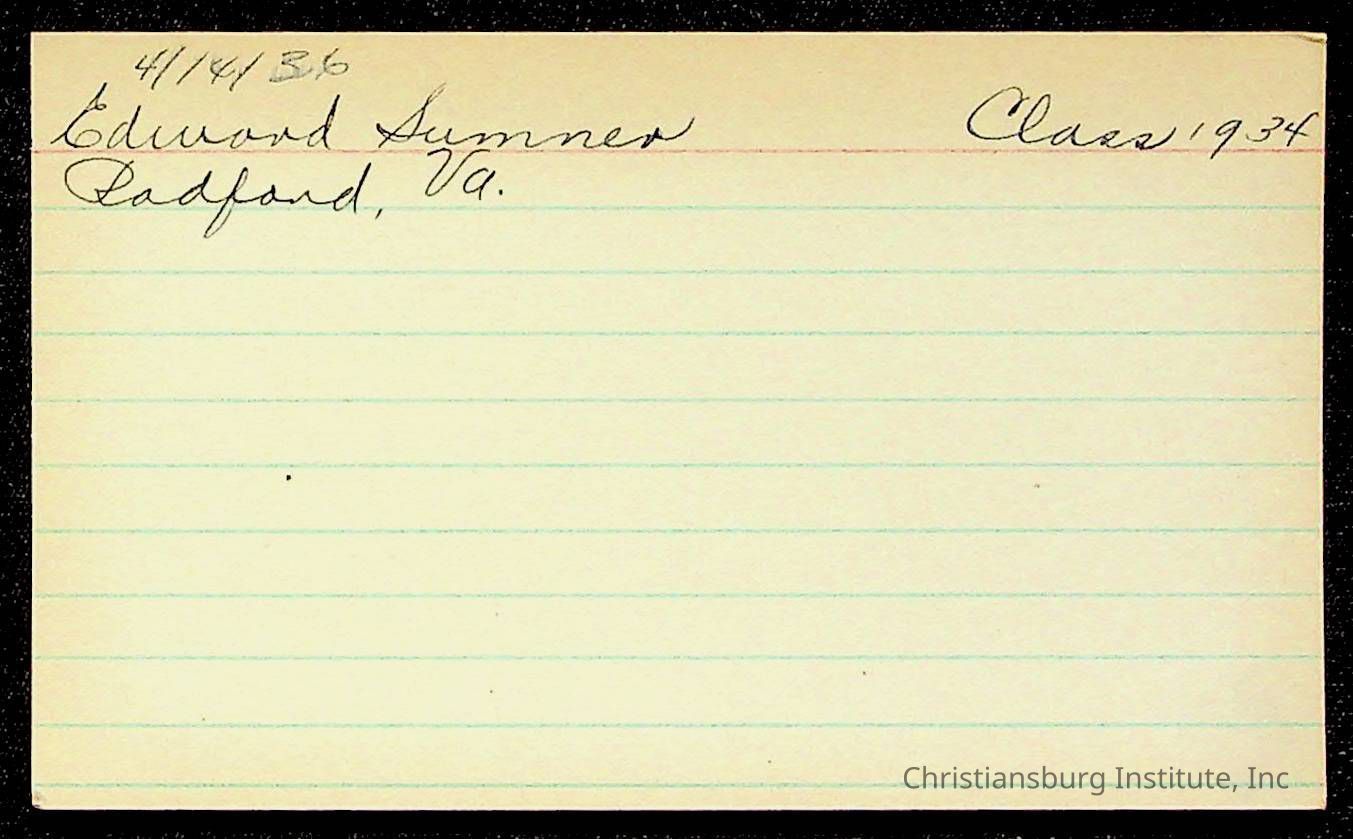 4/14/36
Edward Sumner Class 1934
Radford, Va.
Christiansburg Institute, Inc